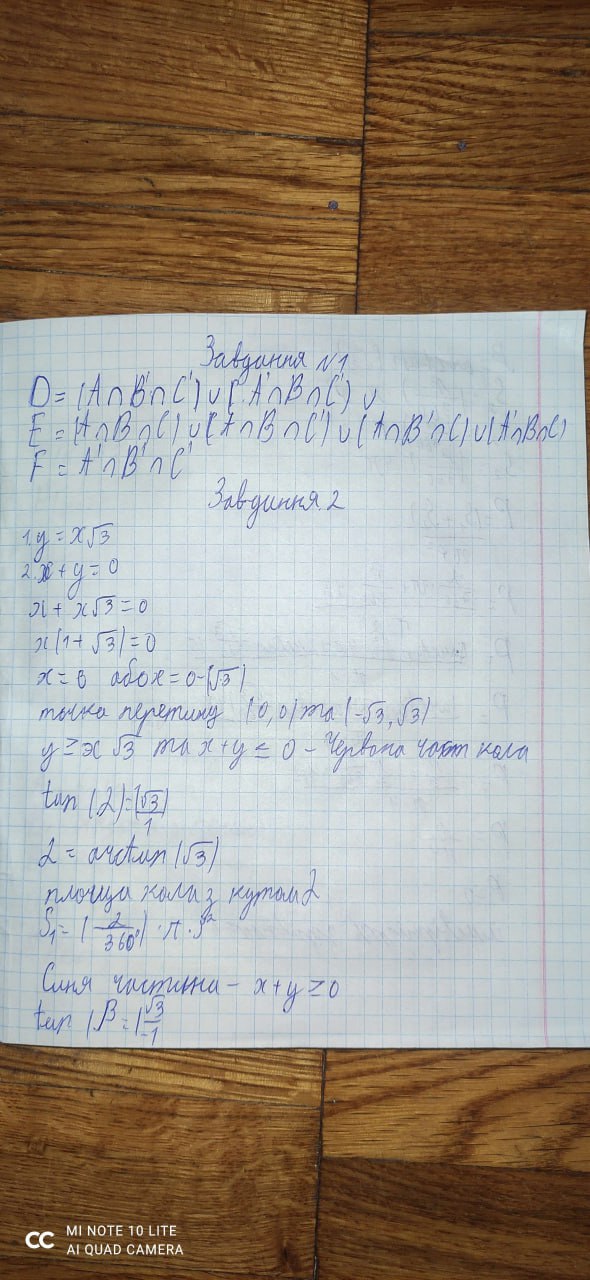 Завдання №1
D = (A∩B'∩C') ∪ (A'∩B∩C') ∪
E = (A∩B∩C) ∪ (A∩B∩C') ∪ (A∩B'∩C) ∪ (A'∩B∩C)
F = A'∩B'∩C'
Завдання 2
1. y = x√3
2. x + y = 0
x + x√3 = 0
x(1 + √3) = 0
x = 0 або x = 0-(√3)
точка перетину (0,0) та (-√3, √3)
y ≥ x√3 та x + y ≤ 0 - Червона част кола
tan (2) = (√3/1)
2 = arctan (√3)
площа кола з кутом 2
S₁ = (2/360°) · π · 5²
Синя частина - x + y ≥ 0
tan (β = (√3/-1
MI NOTE 10 LITE
AI QUAD CAMERA